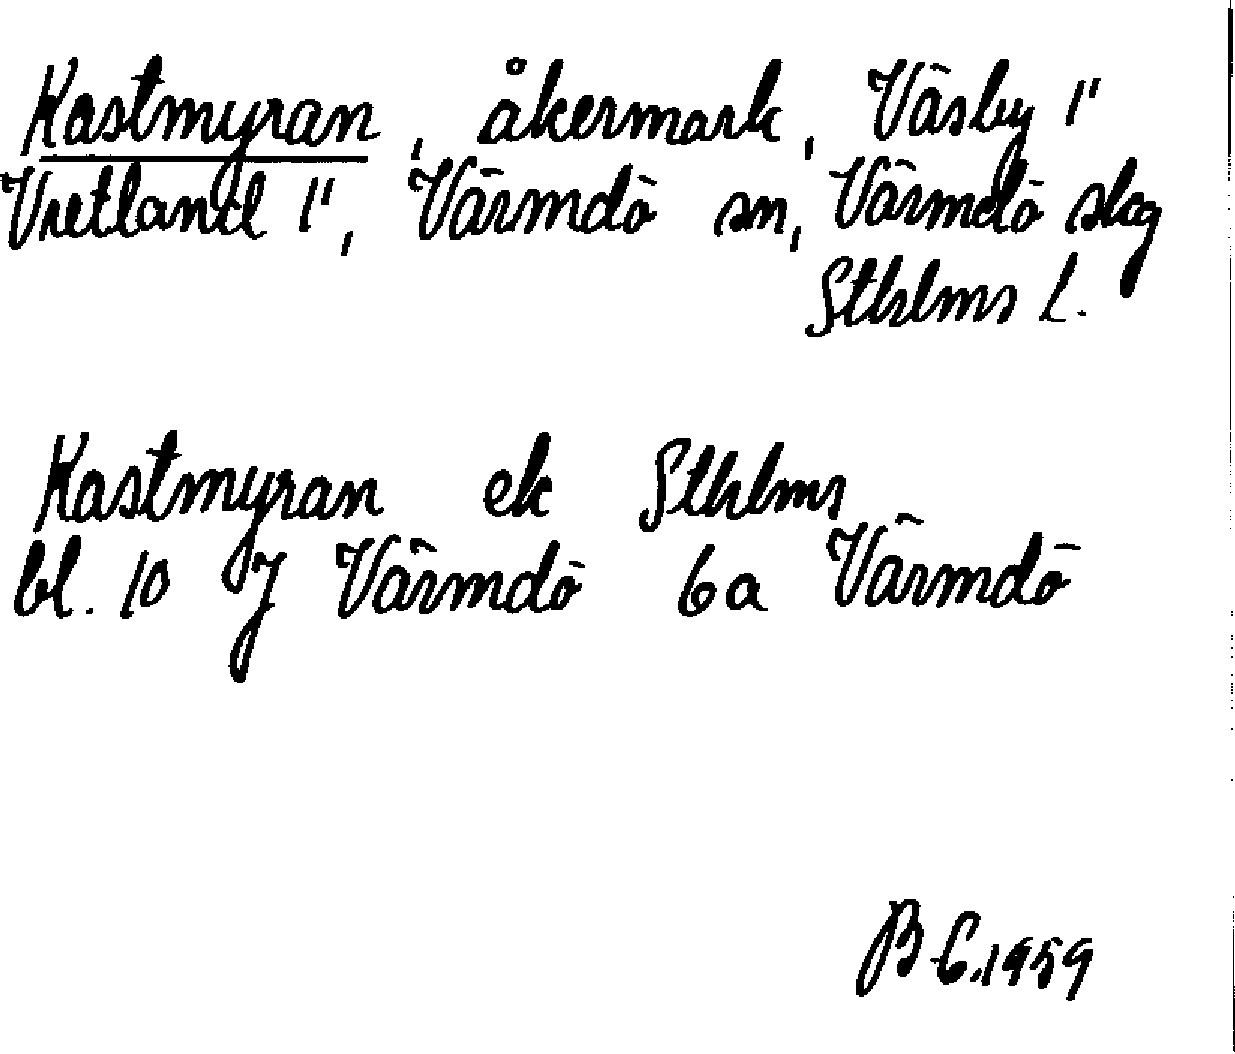 Kastmyran, åkermark, Väsby 1"
Vretland 1", Värmdö sn, Värmdö skg
Sthlms l.
Kastmyran ek Sthlms
bl. 10 J Värmdö 6a Värmdö
B C. 1959